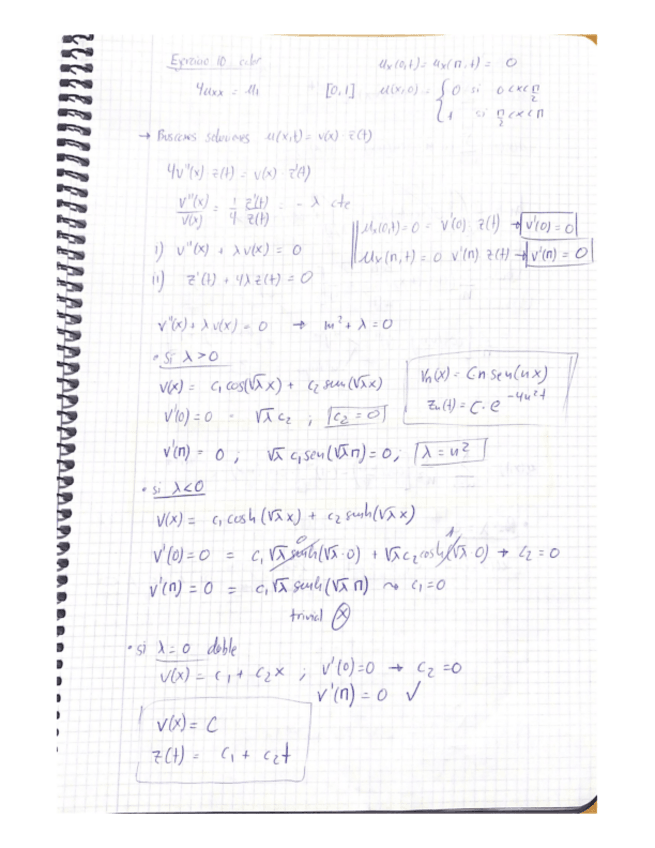 Ejercicio 10 calor
u_x(0,t) = u_x(π,t) = 0
4u_xx = u_t [0,1] u(x,0) = { 0 si 0<x<π/2
1 si π/2<x<π
→ Buscamos soluciones u(x,t) = v(x) · z(t)
4v''(x) · z(t) = v(x) · z'(t)
v''(x)/v(x) = 1/4 z'(t)/z(t) = -λ cte
u_x(0,t) = 0 = v'(0) · z(t) → v'(0) = 0
u_x(π,t) = 0 v'(π) z(t) → v'(π) = 0
i) v''(x) + λv(x) = 0
ii) z'(t) + 4λz(t) = 0
v''(x) + λv(x) = 0 → m² + λ = 0
• Si λ>0
v(x) = c₁cos(√λx) + c₂sen(√λx)
v'(0) = 0 = √λc₂ ; c₂ = 0
v'(π) = 0 ; √λ c₁sen(√λπ) = 0 ; λ = n²
Vn(x) = Cn sen(nx)
Zn(t) = C·e^(-4n²t)
• si λ<0
v(x) = c₁cosh(√λx) + c₂senh(√λx)
v'(0) = 0 = c₁√λ senh(√λ·0) + √λc₂cosh(√λ·0) → c₂ = 0
0 1
v'(π) = 0 = c₁√λ senh(√λπ) ⇝ c₁ = 0
trivial ⓧ
• si λ = 0 doble
v(x) = c₁ + c₂x ; v'(0) = 0 → c₂ = 0
v'(π) = 0 ✓
v(x) = C
z(t) = c₁ + c₂t